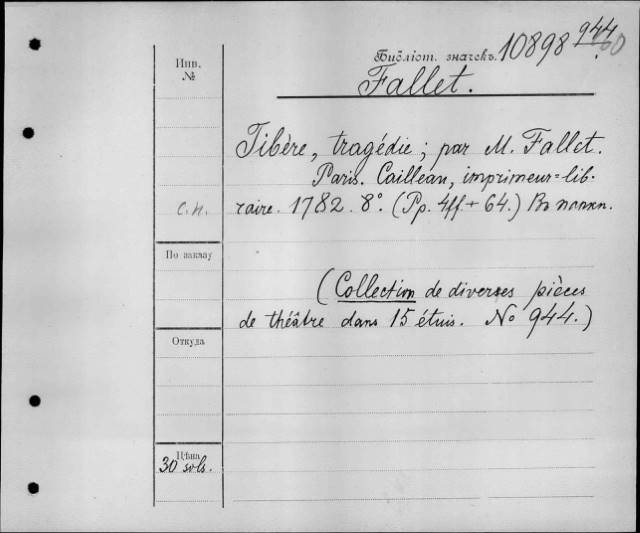 Библіот. значекъ. 10898 944/60
Инв.
№
Fallet.
Tibère, tragédie; par M. Fallet.
Paris. Cailleau, imprimeur=lib-
с.н. raire. 1782. 8°. (Pp. 4ff + 64.) Въ папкѣ.
По заказу
(Collection de diverses pièces
de théâtre dans 15 étuis. No 944.)
Откуда
Цѣна
30 sols.